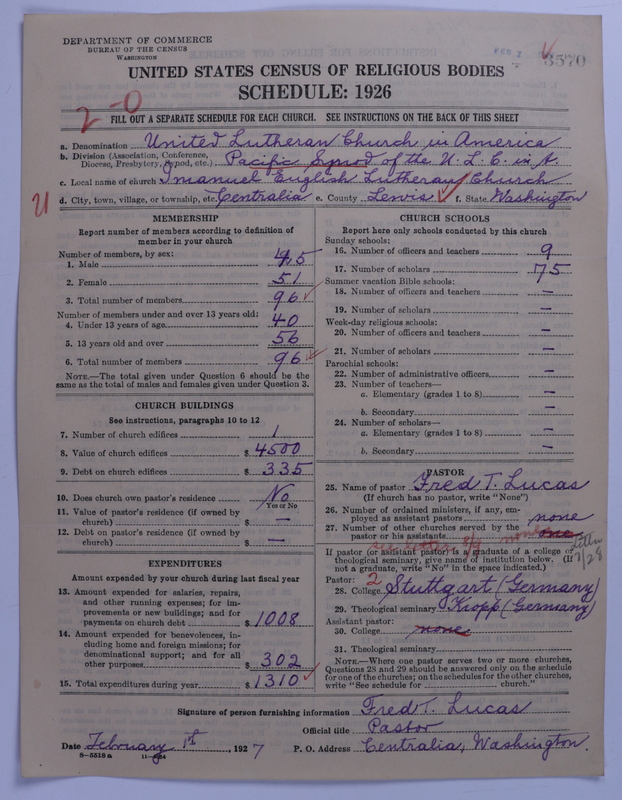 DEPARTMENT OF COMMERCE
BUREAU OF THE CENSUS
WASHINGTON
FEB 2
3570
UNITED STATES CENSUS OF RELIGIOUS BODIES
SCHEDULE: 1926
2-0
FILL OUT A SEPARATE SCHEDULE FOR EACH CHURCH. SEE INSTRUCTIONS ON THE BACK OF THIS SHEET
a. Denomination United Lutheran Church in America
b. Division (Association, Conference, Diocese, Presbytery, Synod, etc.) Pacific Synod of the U. L. C. in A.
c. Local name of church Imanuel English Lutheran Church
d. City, town, village, or township, etc. Centralia e. County Lewis f. State Washington
MEMBERSHIP
Report number of members according to definition of
member in your church
Number of members, by sex:
1. Male 45
2. Female 51
3. Total number of members 96
Number of members under and over 13 years old:
4. Under 13 years of age 40
5. 13 years old and over 56
6. Total number of members 96
NOTE.—The total given under Question 6 should be the
same as the total of males and females given under Question 3.
CHURCH BUILDINGS
See instructions, paragraphs 10 to 12
7. Number of church edifices 1
8. Value of church edifices $ 4500
9. Debt on church edifices $ 335
10. Does church own pastor's residence No
Yes or No
11. Value of pastor's residence (if owned by
church) $ —
12. Debt on pastor's residence (if owned by
church) $ —
EXPENDITURES
Amount expended by your church during last fiscal year
13. Amount expended for salaries, repairs,
and other running expenses; for im-
provements or new buildings; and for
payments on church debt $ 1008
14. Amount expended for benevolences, in-
cluding home and foreign missions; for
denominational support; and for all
other purposes $ 302
15. Total expenditures during year $ 1310
CHURCH SCHOOLS
Report here only schools conducted by this church
Sunday schools:
16. Number of officers and teachers 9
17. Number of scholars 75
Summer vacation Bible schools:
18. Number of officers and teachers —
19. Number of scholars —
Week-day religious schools:
20. Number of officers and teachers —
21. Number of scholars —
Parochial schools:
22. Number of administrative officers —
23. Number of teachers—
a. Elementary (grades 1 to 8) —
b. Secondary —
24. Number of scholars—
a. Elementary (grades 1 to 8) —
b. Secondary —
PASTOR
25. Name of pastor Fred T. Lucas
(If church has no pastor, write "None")
26. Number of ordained ministers, if any, em-
ployed as assistant pastors none
27. Number of other churches served by the
pastor or his assistants none
If pastor (or assistant pastor) is a graduate of a college or
theological seminary, give name of institution below. (If
not a graduate, write "No" in the space indicated.)
Pastor:
28. College 2 Stuttgart (Germany)
29. Theological seminary Kropp (Germany)
Assistant pastor:
30. College none
31. Theological seminary
NOTE.—Where one pastor serves two or more churches,
Questions 28 and 29 should be answered only on the schedule
for one of the churches; on the schedules for the other churches,
write "See schedule for church."
Signature of person furnishing information Fred T. Lucas
Official title Pastor
Date February 1st, 1927 P. O. Address Centralia, Washington.
8—5518 a